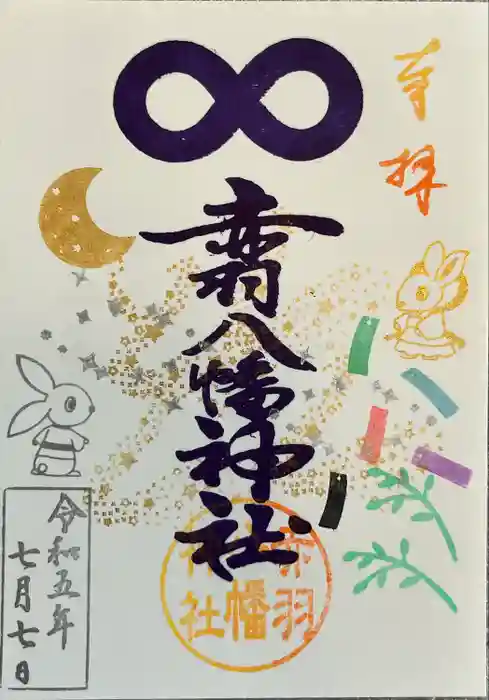 奉
拝
赤羽八幡神社
赤羽
八幡
神社
令和五年
七月七日